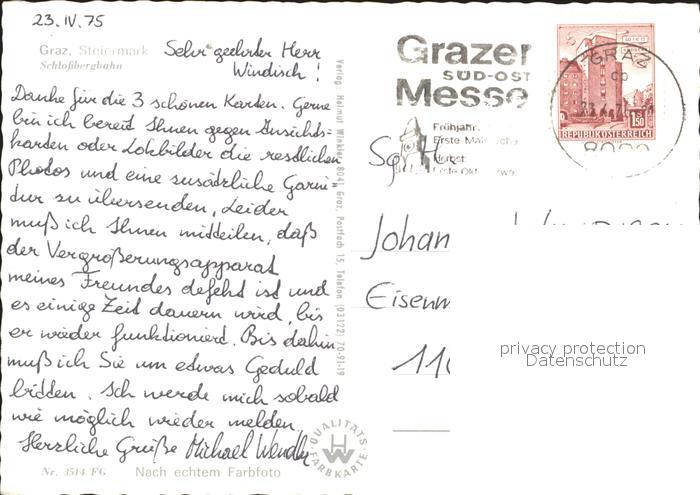 23.IV.75
Graz, Steiermark
Schloßbergbahn
Sehr geehrter Herr
Windisch!
Danke für die 3 schönen Karten. Gerne
bin ich bereit Ihnen gegen Ansichts=
karten oder Lokbilder die restlichen
Photos und eine zusätzliche Garni=
tur zu übersenden. Leider
muß ich Ihnen mitteilen, daß
der Vergrößerungsapparat
meines Freundes defekt ist und
es einige Zeit dauern wird, bis
er wieder funktioniert. Bis dahin
muß ich Sie um etwas Geduld
bitten. Ich werde mich sobald
wie möglich wieder melden.
Herzliche Grüße Michael
Nr. 3514 FG
Nach echtem Farbfoto
Verlag: Helmut Winkler, 8041 Graz, Postfach 15, Telefon (03122) 70-91-19
QUALITÄTS
FARBKARTE
HW
Grazer
SÜD-OST
Messe
Frühjahr:
Erste
Herbst:
GRAZ
8020
1.50
REPUBLIK ÖSTERREICH
Johan
Eisen
110
privacy protection
Datenschutz